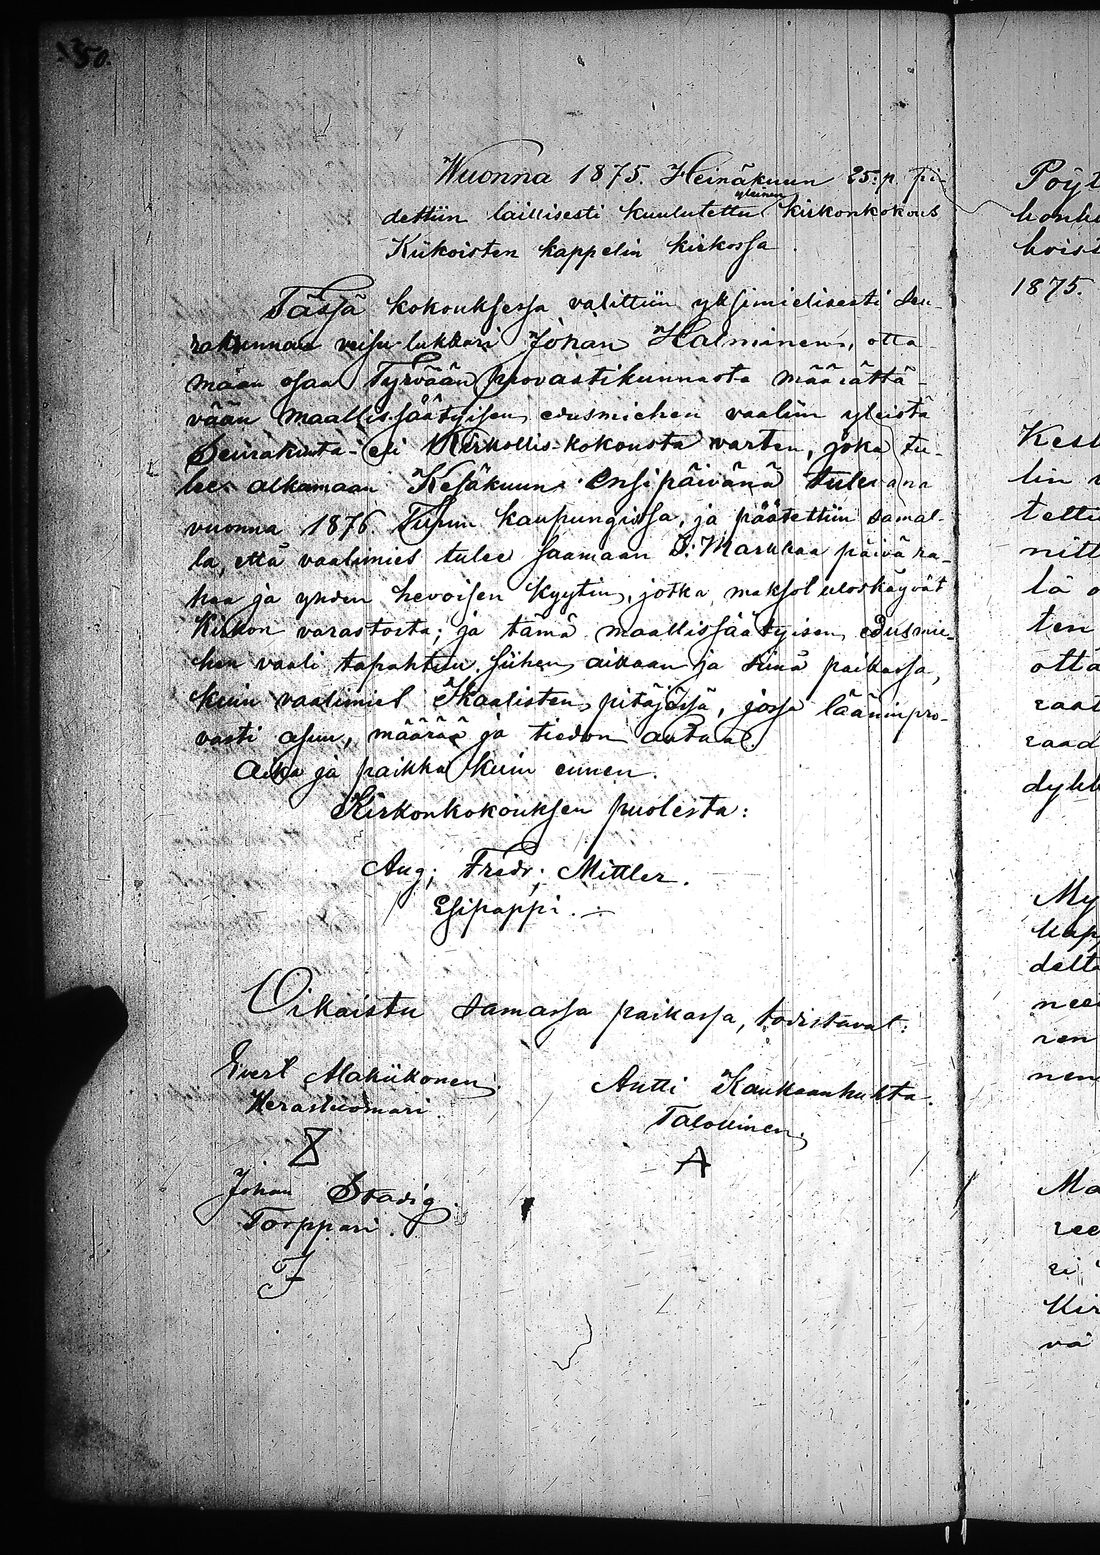 350.
Wuonna 1875. Heinäkuun 25:p. pi-
dettiin laillisesti kuulutettu yleinen kirkonkokous
Kiikoisten kappelin kirkossa.
Tässä kokouksessa valittiin yksimielisesti Seu
rakunnan veisu-lukkari Johan Halminen, otta-
maan osaa Tyrvään provastikunnasta määrättä-
vään maallissäätyisen edusmiehen vaaliin yleistä
Seurakunta- eli Kirkollis-kokousta varten, joka tu-
lee alkamaan Kesäkuun ensipäivänä tulevana
vuonna 1876 Turun kaupungissa, ja päätettiin samal-
la, että vaalimies tulee saamaan Markkaa päivära-
haa ja yhden hevoisen kyytin, jotka maksot uloskäyvät
Kirkon varastosta; ja tämä maallissäätyisen edusmie-
hen vaali tapahtuu siihen aikaan ja siinä paikassa,
kuin vaalimiel Ikaalisten pitäjässä, jossa lääninpro-
vasti asuu, määrää ja tiedon antaa.
Aika ja paikka kuin ennen.
Kirkonkokouksen puolesta:
Aug; Fredr; Mittler.
Esipappi.
Oikaistu samassa paikassa, todistavat:
Evert Alakiikonen.
Herastuomari.
Antti Kaukaanhuhta.
Talollinen.
A
Johan Stadig.
Torppari.
J
Pöyt
1875.
Kesk
lin
tettu
nitt
lä
ten
otta
raat
raad
dykk
My
kap
delta
nee
ren
nen
Ma
ree
ri
Kir
vä